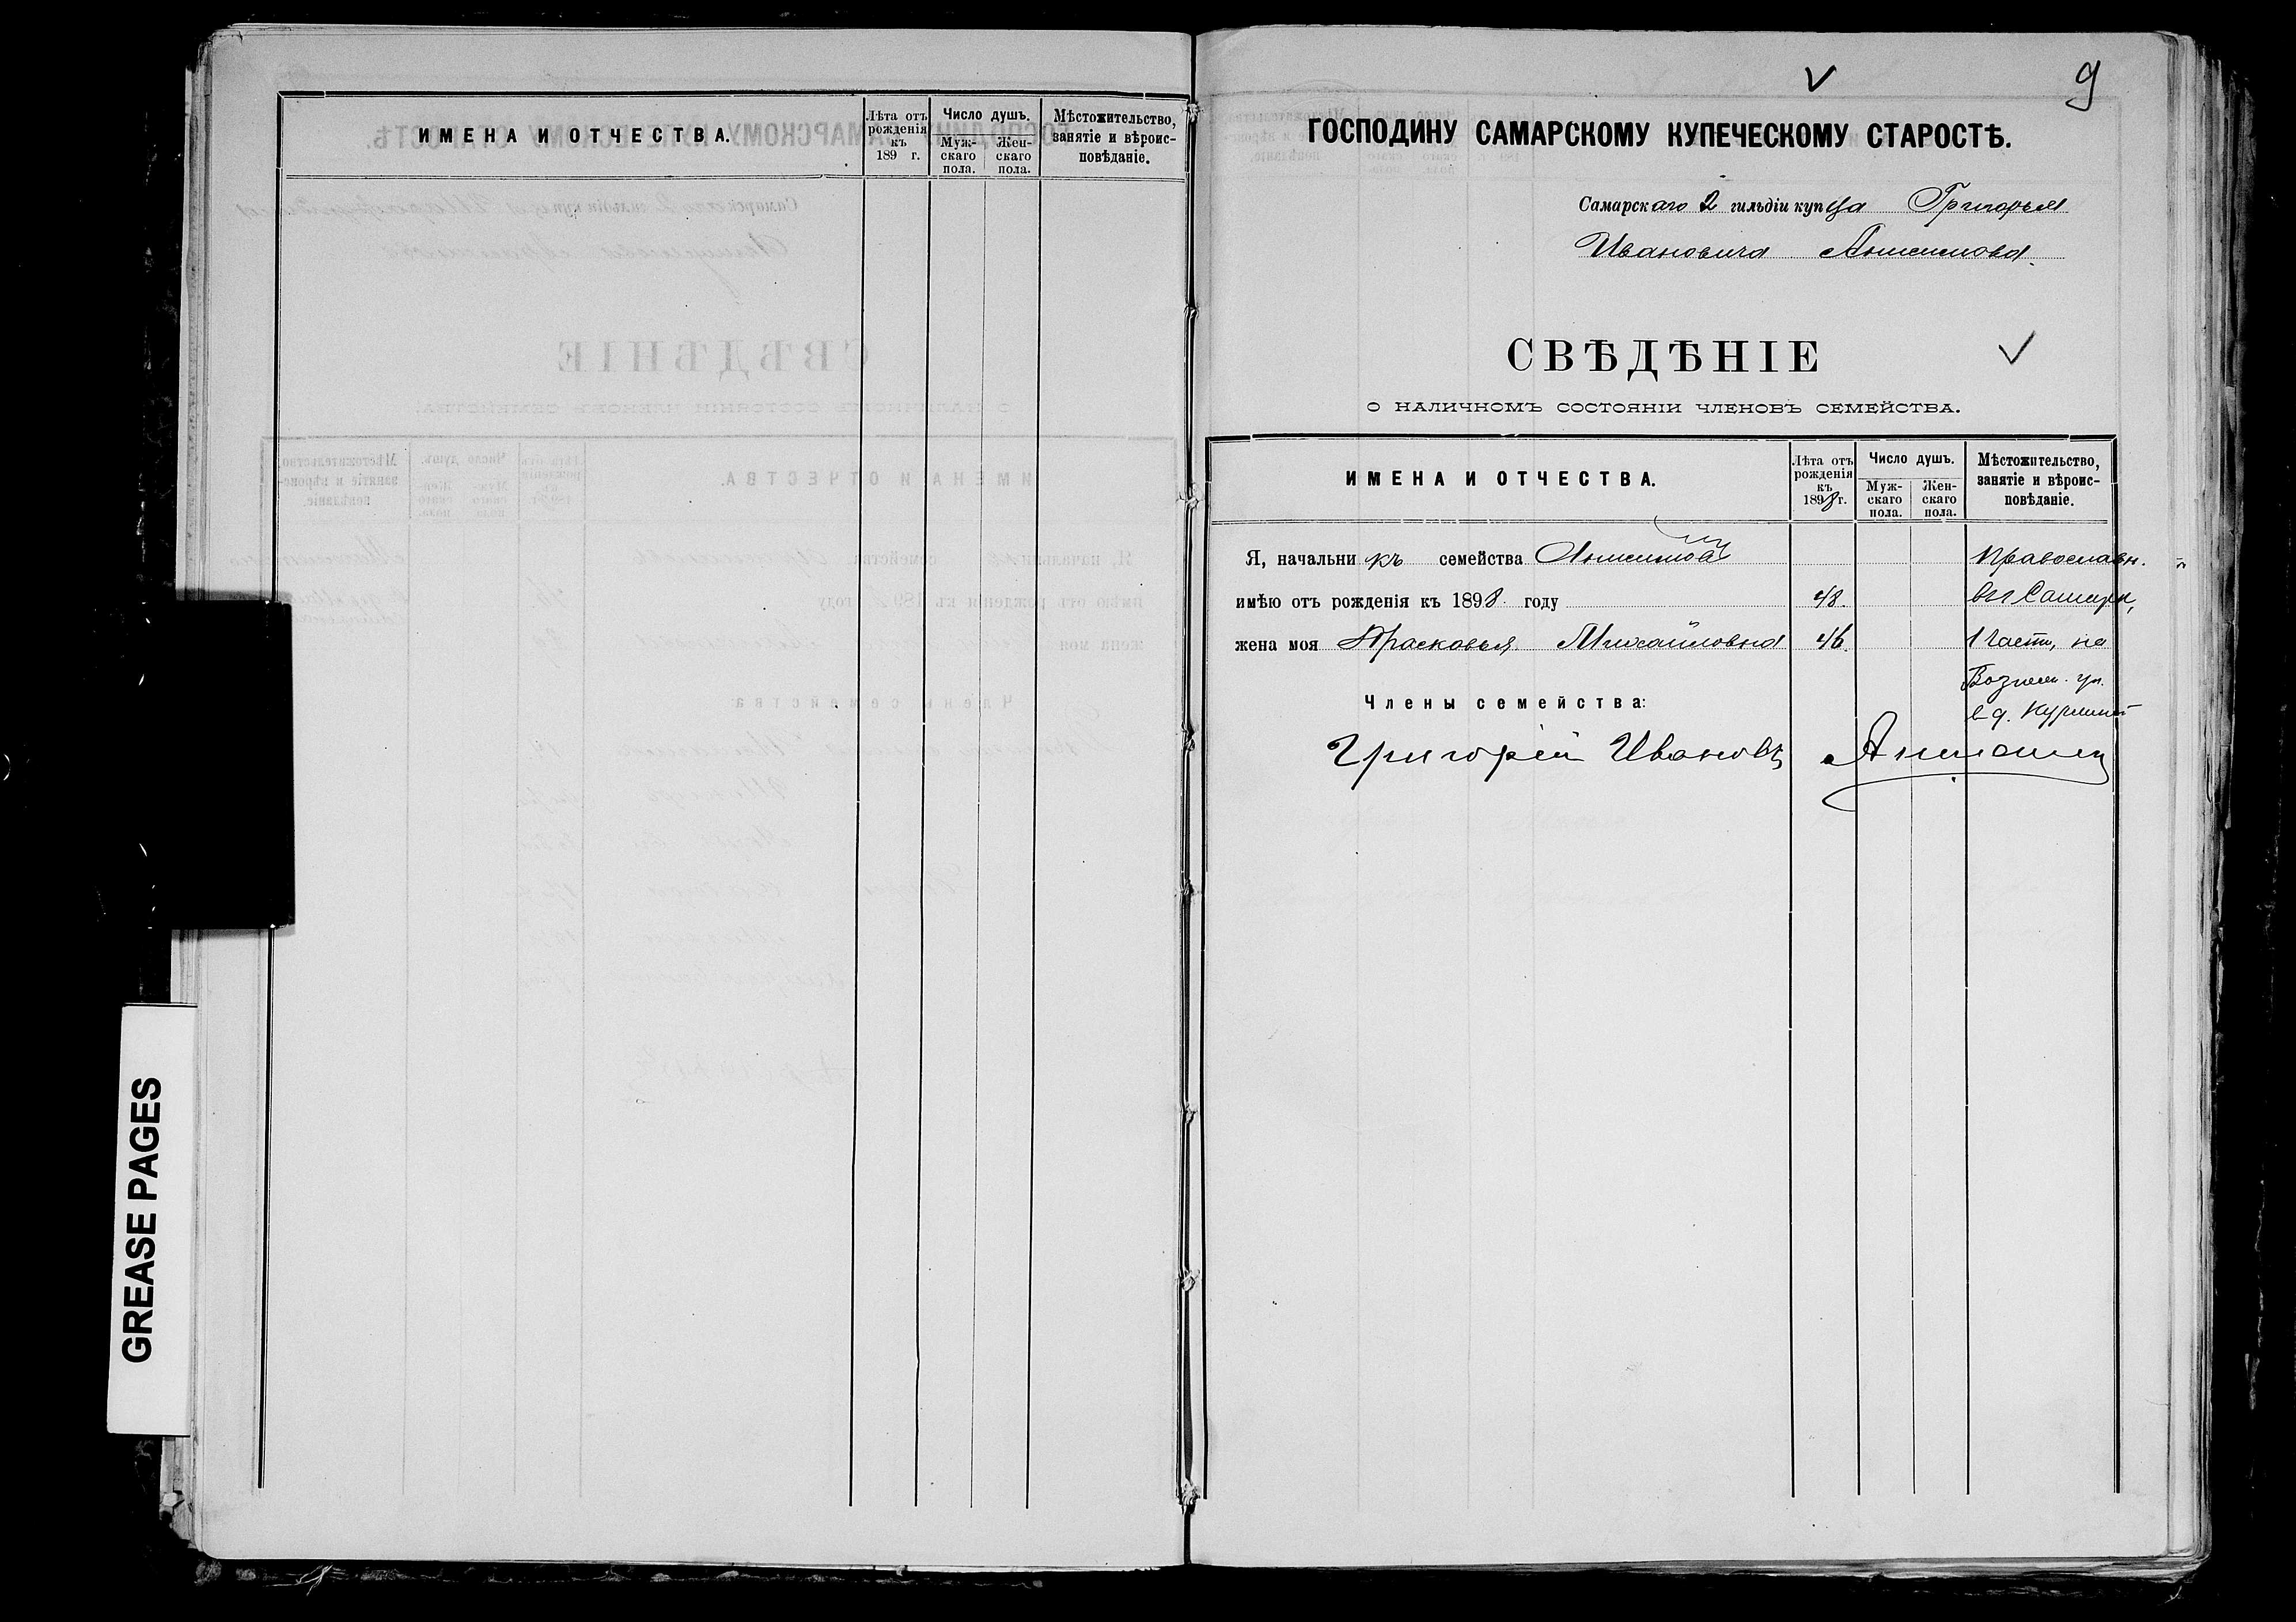 ИМЕНА И ОТЧЕСТВА.
Лѣта отъ рожденія къ 189 г.
Число душъ.
Муж-скаго пола.
Жен-скаго пола.
Мѣстожительство, занятіе и вѣроис-повѣданіе.
GREASE PAGES
9
ГОСПОДИНУ САМАРСКОМУ КУПЕЧЕСКОМУ СТАРОСТѢ.
Самарскаго 2 гильдіи купца Григорья
Ивановича
СВѢДѢНІЕ
О НАЛИЧНОМЪ СОСТОЯНІИ ЧЛЕНОВЪ СЕМЕЙСТВА.
ИМЕНА И ОТЧЕСТВА.
Лѣта отъ рожденія къ 1898 г.
Число душъ.
Муж-скаго пола.
Жен-скаго пола.
Мѣстожительство, занятіе и вѣроис-повѣданіе.
Я, начальникъ семейства Православн.
имѣю отъ рожденія къ 1898 году 48. въ г Самарѣ,
жена моя Прасковья Михайловна 46. 1 части, на
Вознесен. ул.
Члены семейства: в д.
Григорій Ивановъ